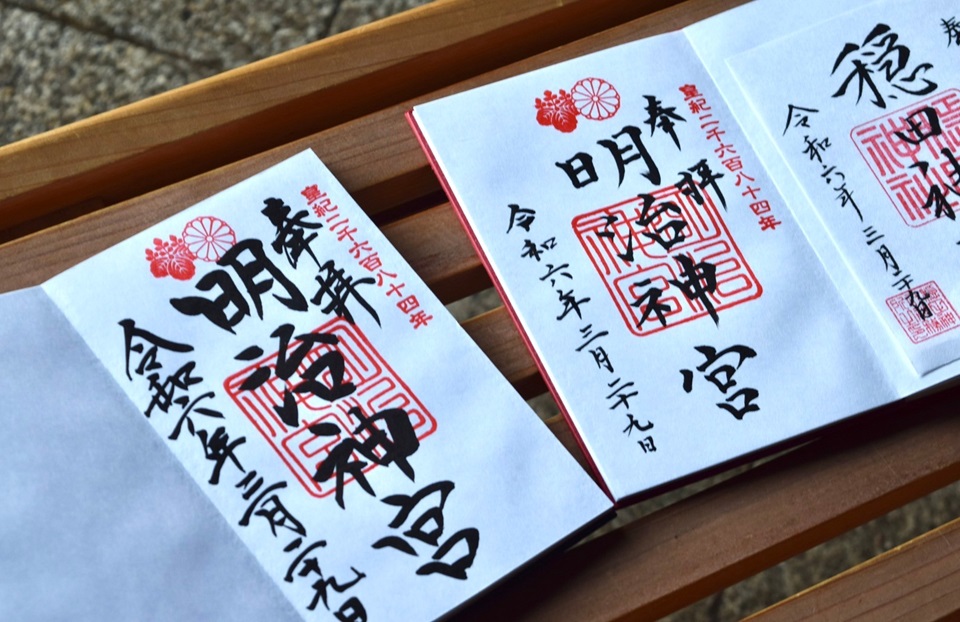 皇紀二千六百八十四年
奉拝
明治神宮
令和六年三月二十九日
皇紀二千六百八十四年
奉拝
明治神宮
令和六年三月二十九日
奉
穏田神
令和六年三月